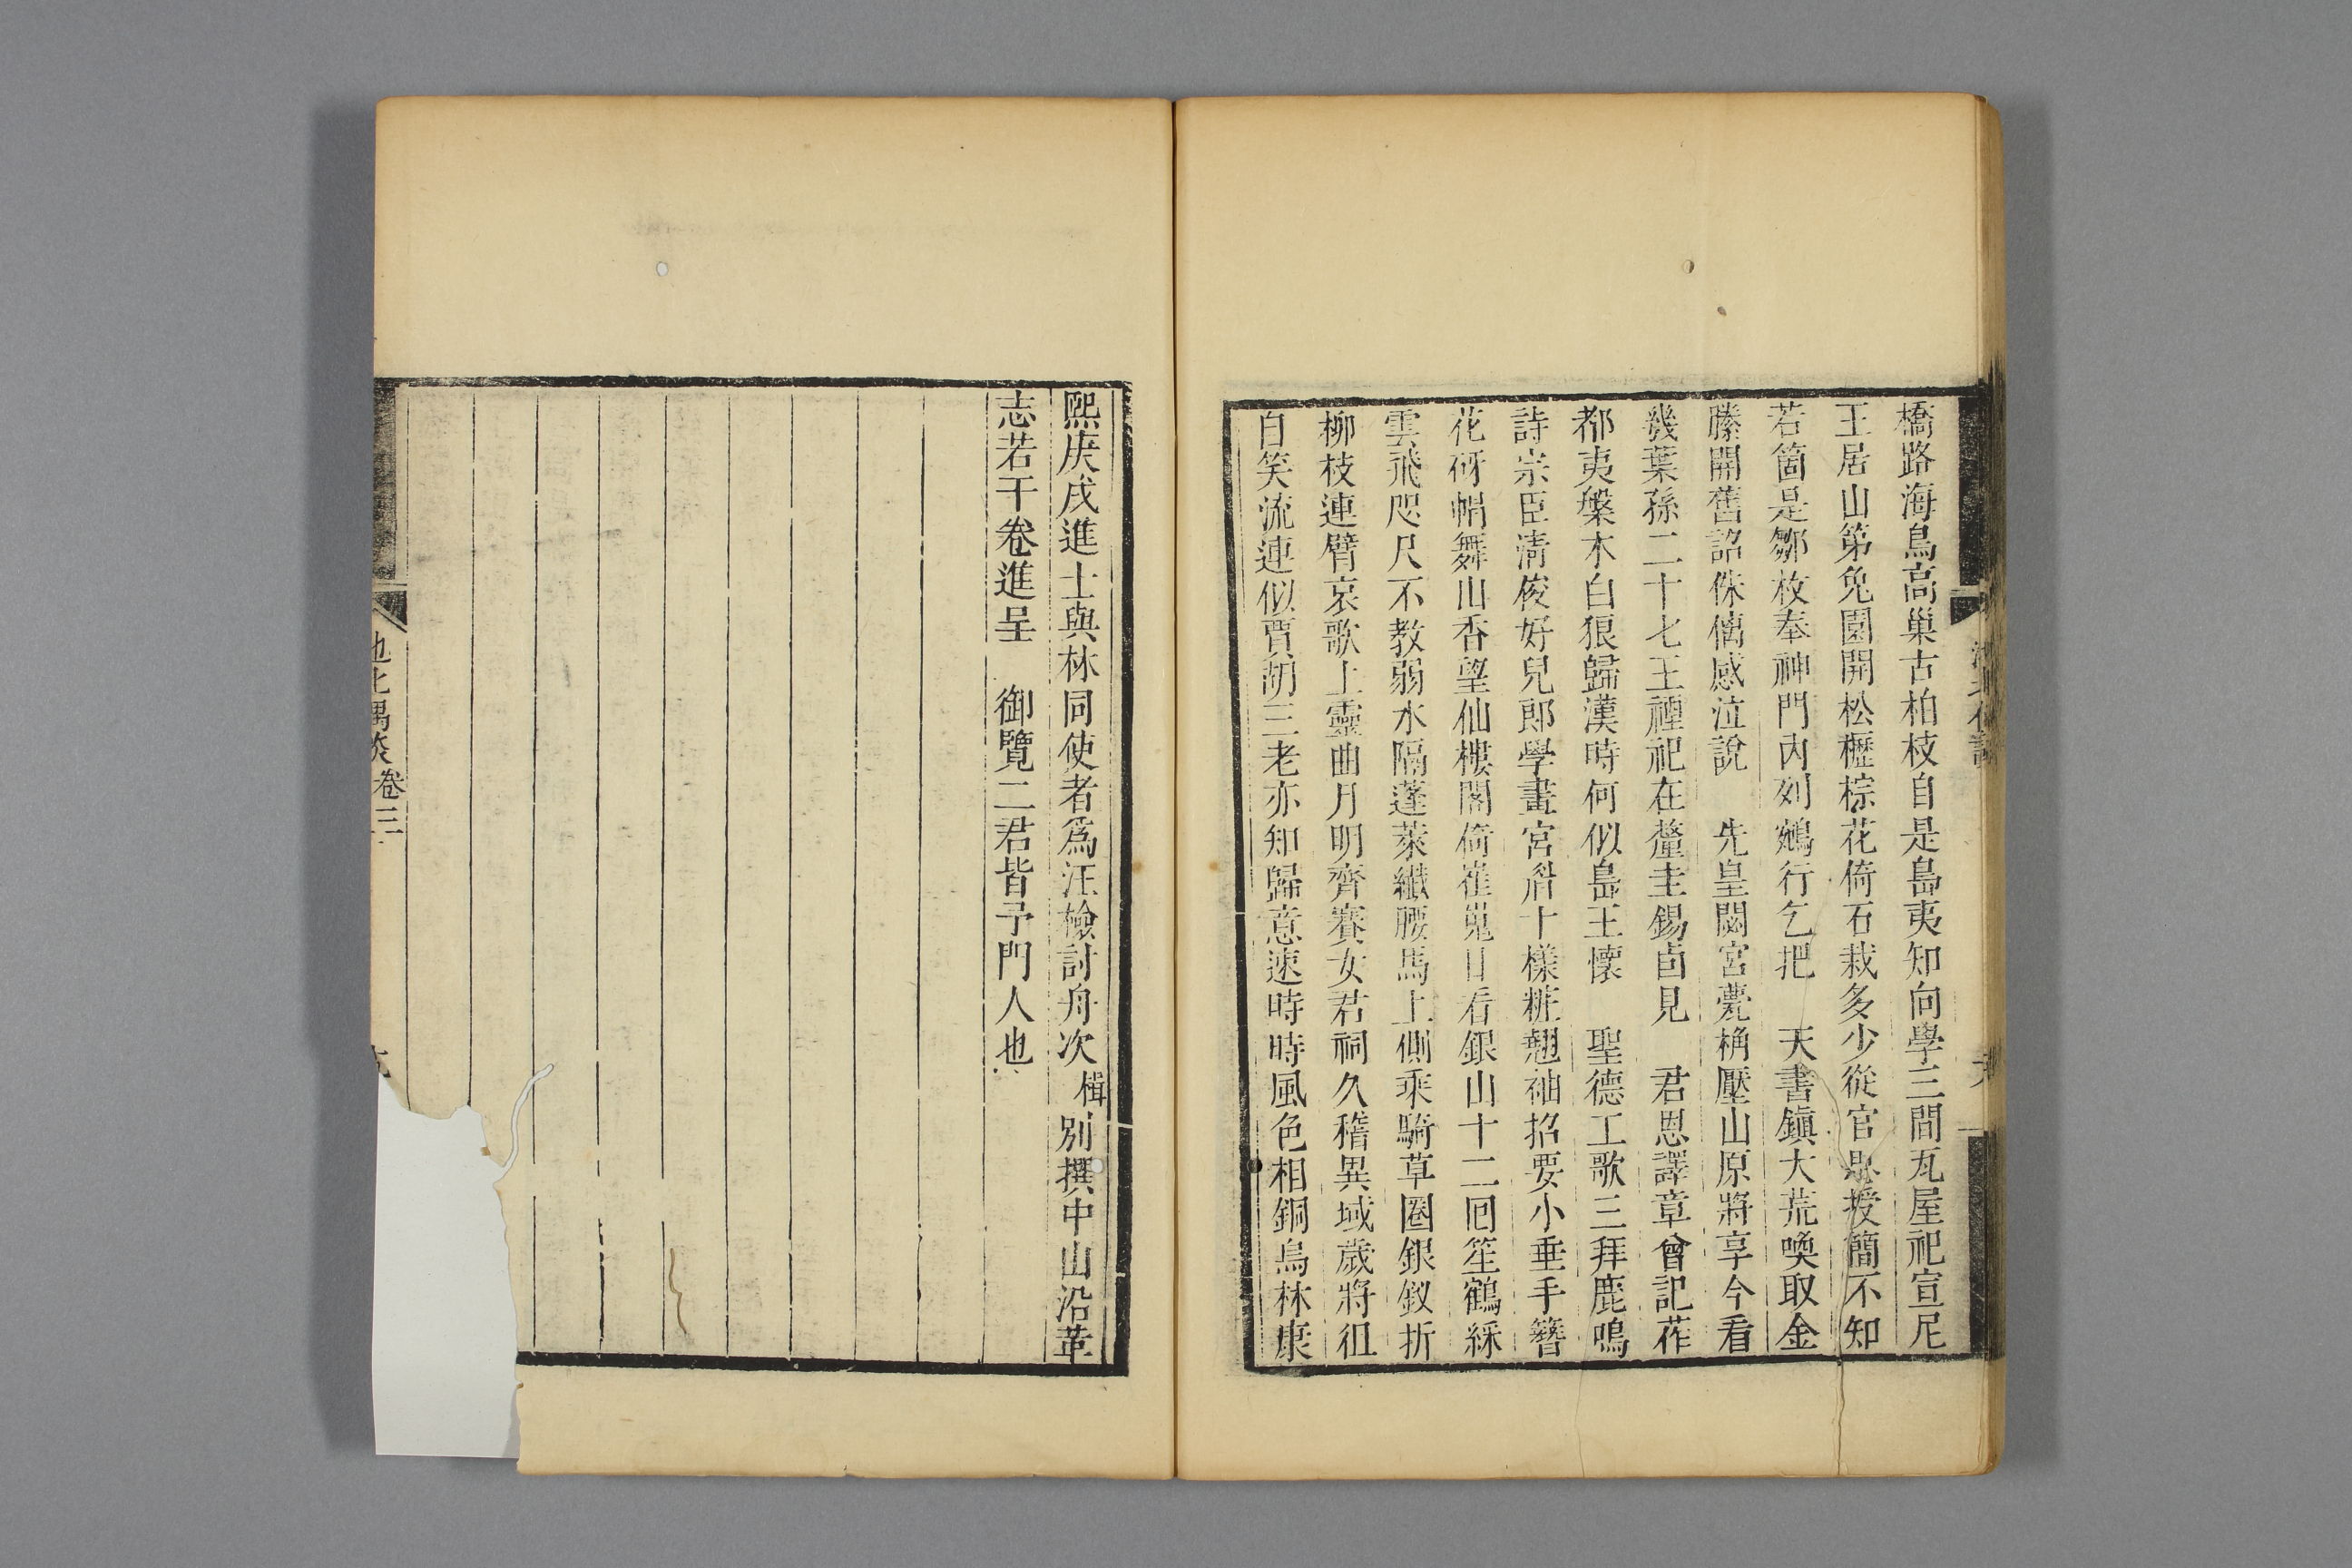 橋路海鳥高巢古柏枝自是島夷知向學三間瓦屋祀宣尼
王居山第兔園開松櫪棕花倚石栽多少從官思授簡不知
若箇是鄒枚奉神門內列鵷行乞把　天書鎭大荒喚取金
縢開舊詔侏𠌯感泣說　先皇閟宮甍桷壓山原將享今看
幾葉孫二十七王禋祀在釐圭錫卣見　君恩譯章曾記莋
都夷槃木白狼歸漢時何似島王懷　聖德工歌三拜鹿鳴
詩宗臣淸俊好兒郎學畫宮眉十樣粧翹袖招要小垂手簪
花砑帽舞山香望仙樓閣倚崔嵬日看銀山十二囘笙鶴綵
雲飛咫尺不教弱水隔蓬萊纖腰馬上側乘騎草圈銀釵折
柳枝連臂哀歌上靈曲月明齊賽女君祠久稽異域歲將徂
自笑流連似賈胡三老亦知歸意速時時風色相銅烏林康
熙庚戌進士與林同使者爲汪檢討舟次楫別撰中山沿革
志若干卷進呈　御覽二君皆予門人也
池北偶談卷三